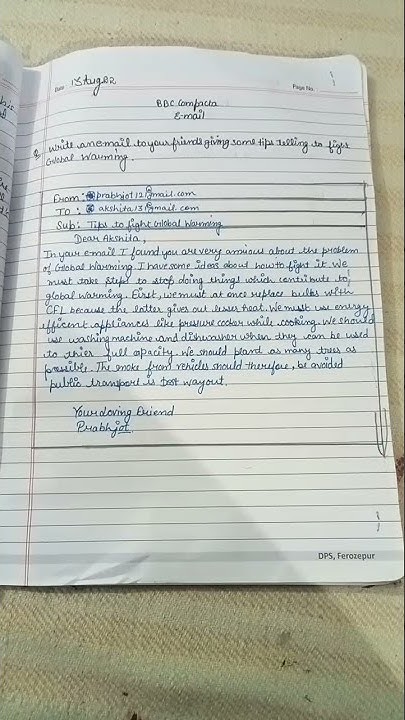 Date 13 Aug 02
Page No.
BBC Compacta
E-mail
Q Write an email to your friends giving some tips telling to fight
Global Warming.
From: @prabhjot12@mail.com
TO: @ akshita131@mail.com
Sub: Tips to fight Global Warming
Dear Akshita,
In your email I found you are very anxious about the problem
of Global Warming. I have some ideas about how to fight it. We
must take steps to stop doing things which contribute to
global warming. First, we must at once replace bulbs with
CFL because the latter gives out lesser heat. We must use energy
efficent appliances like pressure cooker while cooking. We should
use washing machine and dishwasher when they can be used
to thier full capacity. We should plant as many trees as
possible. The smoke from vehicles should therefore, be avoided
public transport is best way out.
Your loving Friend
Prabhjot
DPS, Ferozepur